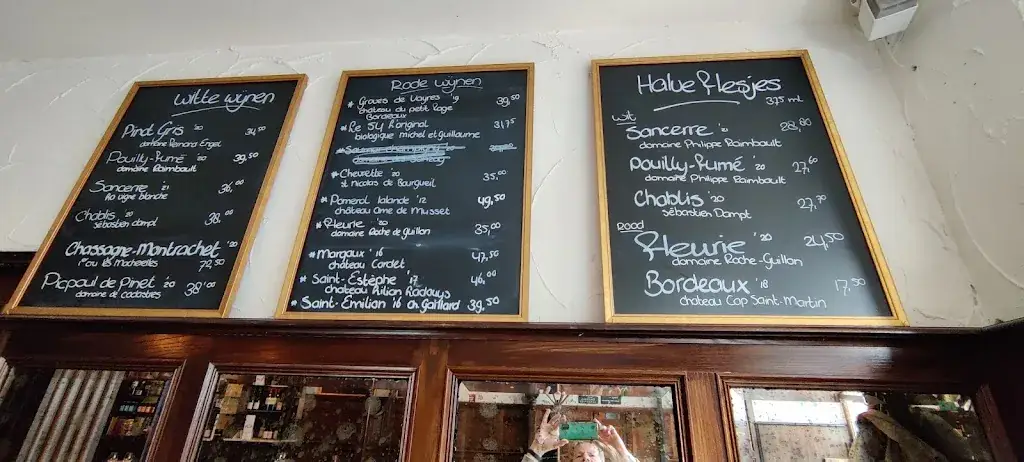 Witte wijnen
Pinot Gris '20 34,50
domaine Bernard Engel
Pouilly-Fumé '20 39,50
domaine Raimbault
Sancerre '21 36,00
La vigne blanche
Chablis '20 38,00
sébastien dampt
Chassagne-Montrachet '20
1er cru les Macherelles 72,50
Picpoul de Pinet '20 38,00
domaine de cadastres
Rode wijnen
* Graves de Vayres '19 39,50
château du petit
Bordeaux
* Le 54 l'original 31,75
biologique michel et Guillaume
* Chevrette '20 35,00
st nicolas de Bourgueil
* Pomerol lalande '12 49,50
château Ame de Musset
* Fleurie '20 35,00
domaine Roche de Guillon
* Margaux '16 47,50
château Cordet
* Saint-Estèphe '17 46,00
château Radauys
* Saint-Emilian '16 ch Gaillard 39,50
Halve flesjes
375 ml
wit
Sancerre '21 28,80
domaine Philippe Raimbault
Pouilly-fumé '20 27,60
domaine Philippe Raimbault
Chablis '20 27,70
sébastien Dampt
rood
Fleurie '20 24,50
domaine Roche-Guillon
Bordeaux '18 17,50
chateau Cap Saint-Martin